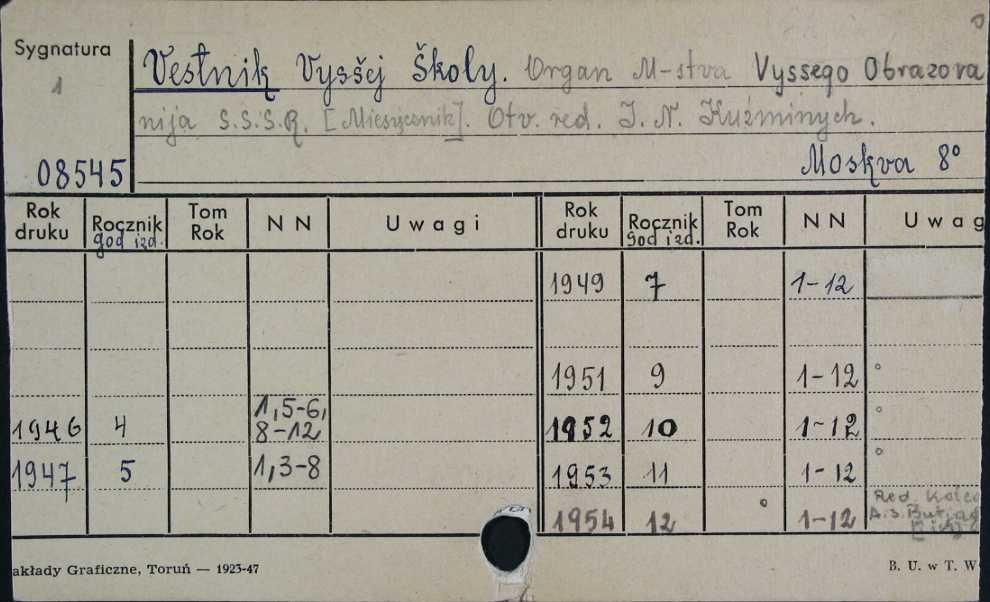 Sygnatura
1
08545
Vestnik Vysšej Školy. Organ M-stva Vyssego Obrazova
nija S.S.S.R. [Miesięcznik]. Otv. red. I. N. Kuźminych.
Moskva 8°
Rok druku Rocznik god izd. Tom Rok N N Uwagi Rok druku Rocznik god izd. Tom Rok N N Uwag
1949 7 1-12
1951 9 1-12 °
1946 4 1,5-6, 8-12 1952 10 1-12 °
1947 5 1,3-8 1953 11 1-12 °
1954 12 ° 1-12 Red. A.S.
akłady Graficzne, Toruń — 1923-47 B. U. w T. W